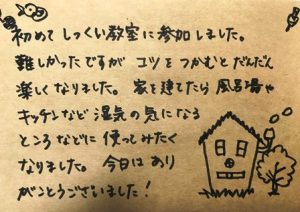 初めてしっくい教室に参加しました。
難しかったですが コツをつかむとだんだん
楽しくなりました。 家を建てたら 風呂場や
キッチンなど 湿気の気になる
ところなどに 使ってみたく
なりました。 今日は あり
がとうございました!